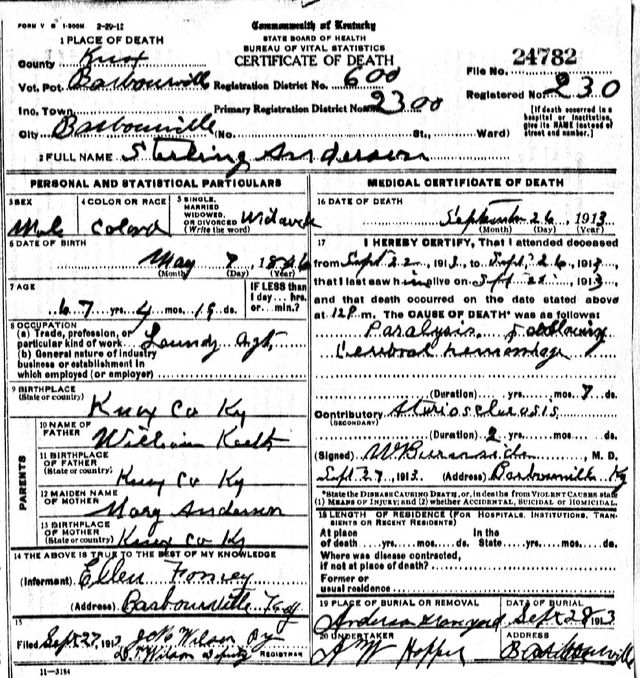 FORM V S 1-500M 2-29-12
Commonwealth of Kentucky
STATE BOARD OF HEALTH
BUREAU OF VITAL STATISTICS
CERTIFICATE OF DEATH
1 PLACE OF DEATH
County Knox
Vot. Pct. Barbourville Registration District No. 600
File No. 24782
Inc. Town Primary Registration District No. 2300
Registered No. 230
City Barbourville (No. St., Ward)
[If death occurred in a hospital or institution, give its NAME instead of street and number.]
2 FULL NAME Sterling Anderson
PERSONAL AND STATISTICAL PARTICULARS
3 SEX Male
4 COLOR OR RACE Colord
5 SINGLE, MARRIED WIDOWED, OR DIVORCED (Write the word)
6 DATE OF BIRTH
May 7, 1846
(Month) (Day) (Year)
7 AGE
67 yrs. 4 mos. 19 ds.
IF LESS than 1 day... hrs. or... min.?
8 OCCUPATION
(a) Trade, profession, or particular kind of work Laundy agt.
(b) General nature of industry business or establishment in which employed (or employer)
9 BIRTHPLACE (State or country)
Knox Co Ky
PARENTS
10 NAME OF FATHER William
11 BIRTHPLACE OF FATHER (State or country) Knox Co Ky
12 MAIDEN NAME OF MOTHER Mary Anderson
13 BIRTHPLACE OF MOTHER (State or country) Knox Co Ky
14 THE ABOVE IS TRUE TO THE BEST OF MY KNOWLEDGE
(Informant) Ellen
(Address) Barbourville
15
Filed Sept 27, 1913 Jno Wilson
D.T. Wilson Deputy REGISTRAR
11-3184
MEDICAL CERTIFICATE OF DEATH
16 DATE OF DEATH
September 26, 1913
(Month) (Day) (Year)
17 I HEREBY CERTIFY, That I attended deceased
from Sept 22, 1913, to Sept, 26, 1913,
that I last saw him alive on Sept., 1913,
and that death occurred on the date stated above
at 12 P.m. The CAUSE OF DEATH* was as follows:
Paralysis following
Cerebral hemorrhage
(Duration) yrs. mos. 7 ds.
Contributory (SECONDARY) Ateriosclorosis
(Duration) 2 yrs. mos. ds.
(Signed) W Burnside, M. D.
Sept 27, 1913. (Address) Barbourville Ky
*State the DISEASE CAUSING DEATH, or, in deaths from VIOLENT CAUSES state
(1) MEANS OF INJURY; and (2) whether ACCIDENTAL, SUICIDAL or HOMICIDAL.
18 LENGTH OF RESIDENCE (FOR HOSPITALS, INSTITUTIONS, TRANSIENTS OR RECENT RESIDENTS)
At place of death yrs. mos. ds. In the State yrs. mos. ds.
Where was disease contracted, if not at place of death?
Former or usual residence
19 PLACE OF BURIAL OR REMOVAL
Anderson
DATE OF BURIAL
Sept 28 1913
20 UNDERTAKER
A W Hopper
ADDRESS
Barbourville